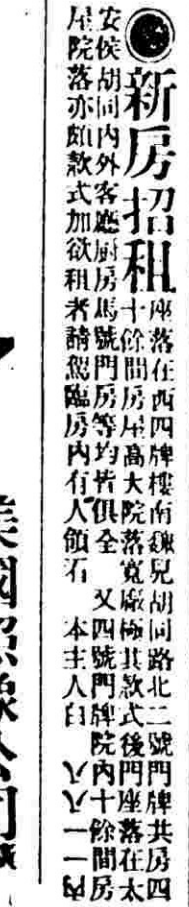 新房招租
座落在西四牌樓南魏兒胡同路北二號門牌共房四
十餘間房屋高大院落寬廠極其款式後門座落在太
安侯胡同內外客廳厨房馬號門房等均皆俱全 又四號門牌院內十餘間房
屋院落亦頗款式加欲租者請駕臨房內有人領石 本主人白 八八一一內
國照像公司